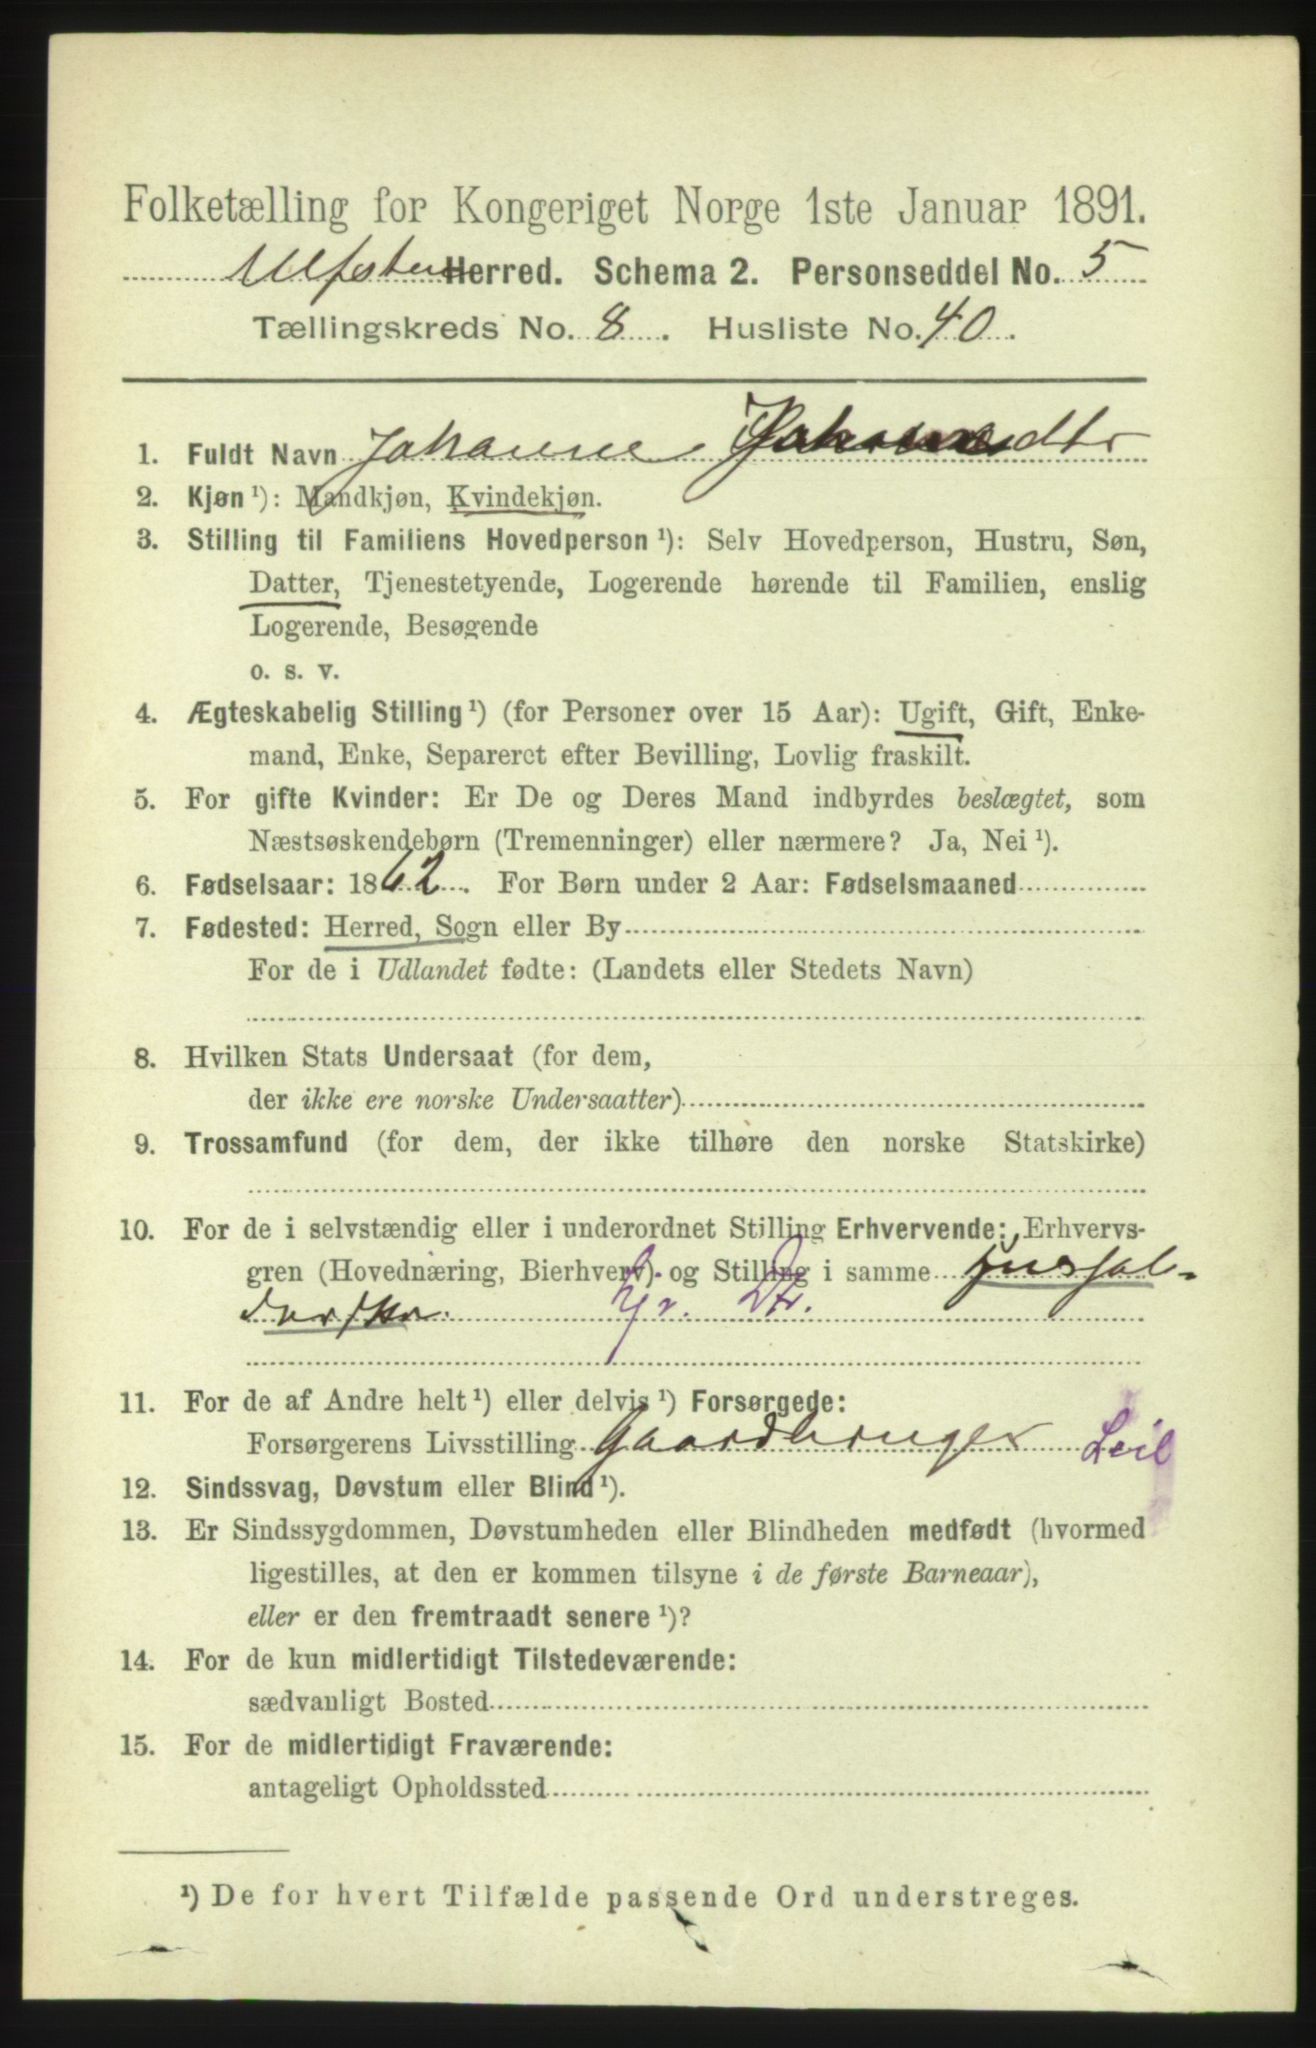 Folketælling for Kongeriget Norge 1ste Januar 1891.
Ulfsten Herred. Schema 2. Personseddel No. 5
Tællingskreds No. 8. Husliste No. 40.
1. Fuldt Navn Johanne dtr
2. Kjøn ¹): Mandkjøn, Kvindekjøn.
3. Stilling til Familiens Hovedperson ¹): Selv Hovedperson, Hustru, Søn,
Datter, Tjenestetyende, Logerende hørende til Familien, enslig
Logerende, Besøgende
o. s. v.
4. Ægteskabelig Stilling ¹) (for Personer over 15 Aar): Ugift, Gift, Enke-
mand, Enke, Separeret efter Bevilling, Lovlig fraskilt.
5. For gifte Kvinder: Er De og Deres Mand indbyrdes beslægtet, som
Næstsøskendebørn (Tremenninger) eller nærmere? Ja, Nei ¹).
6. Fødselsaar: 1862. For Børn under 2 Aar: Fødselsmaaned
7. Fødested: Herred, Sogn eller By
For de i Udlandet fødte: (Landets eller Stedets Navn)
8. Hvilken Stats Undersaat (for dem,
der ikke ere norske Undersaatter)
9. Trossamfund (for dem, der ikke tilhøre den norske Statskirke)
10. For de i selvstændig eller i underordnet Stilling Erhvervende: Erhvervs-
gren (Hovednæring, Bierhverv) og Stilling i samme
11. For de af Andre helt ¹) eller delvis ¹) Forsørgede:
Forsørgerens Livsstilling Gaardbruger Leil
12. Sindssvag, Døvstum eller Blind ¹).
13. Er Sindssygdommen, Døvstumheden eller Blindheden medfødt (hvormed
ligestilles, at den er kommen tilsyne i de første Barneaar),
eller er den fremtraadt senere ¹)?
14. For de kun midlertidigt Tilstedeværende:
sædvanligt Bosted
15. For de midlertidigt Fraværende:
antageligt Opholdssted
¹) De for hvert Tilfælde passende Ord understreges.